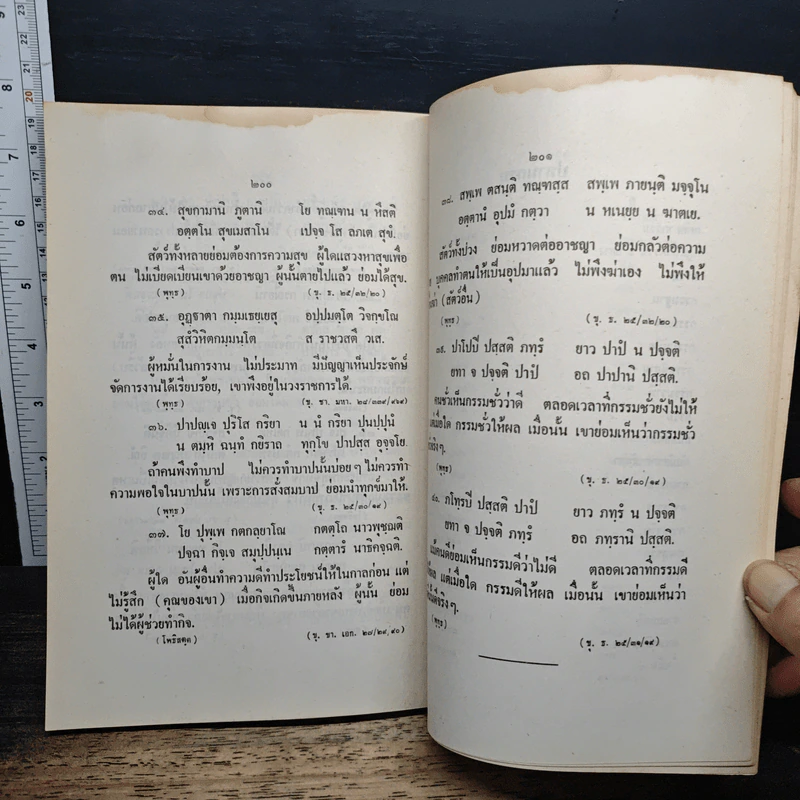 ๒๐๐
๓๔. สุขกามานิ ภูตานิ โย ทณฺเฑน น หึสติ
อตฺตโน สุขเมสาโน เปจฺจ โส ลภเต สุขํ.
สัตว์ทั้งหลายย่อมต้องการความสุข ผู้ใดแสวงหาสุขเพื่อ
ตน ไม่เบียดเบียนเขาด้วยอาชญา ผู้นั้นตายไปแล้ว ย่อมได้สุข.
(พุทฺธ) (ขุ. ธ. ๒๕/๓๒/๒๐)
๓๕. อุฏฺฐาตา กมฺมเธยฺเยสุ อปฺปมตฺโต วิจกฺขโณ
สุสํวิหิตกมฺมนฺโต ส ราชวสตึ วเส.
ผู้หมั่นในการงาน ไม่ประมาท มีปัญญาเห็นประจักษ์
จัดการงานได้เรียบร้อย, เขาพึงอยู่ในวงราชการได้.
(พุทฺธ) (ขุ. ชา. มหา. ๒๘/๓๓๙/)
๓๖. ปาปญฺเจ ปุริโส กริยา น นํ กริยา ปุนปฺปุนํ
น ตมฺหิ ฉนฺทํ กยิราถ ทุกฺโข ปาปสฺส อุจฺจโย.
ถ้าคนพึงทำบาป ไม่ควรทำบาปนั้นบ่อยๆ ไม่ควรทำ
ความพอใจในบาปนั้น เพราะการสั่งสมบาป ย่อมนำทุกข์มาให้.
(พุทฺธ) (ขุ. ธ. ๒๕/๓๐/๑๙)
๓๗. โย ปุพฺเพ กตกลฺยาโณ กตตฺโถ นาวพุชฺฌติ
ปจฺฉา กิจฺเจ สมุปฺปนฺเน กตฺตารํ นาธิคจฺฉติ.
ผู้ใด อันผู้อื่นทำความดีทำประโยชน์ให้ในกาลก่อน แต่
ไม่รู้สึก (คุณของเขา) เมื่อกิจเกิดขึ้นภายหลัง ผู้นั้น ย่อม
ไม่ได้ผู้ช่วยทำกิจ.
(โพธิสตฺต) (ขุ. ชา. เอก. ๒๗/๒๙,๔๐)
๒๐๑
๓๘. สพฺเพ ตสนฺติ ทณฺฑสฺส สพฺเพ ภายนฺติ มจฺจุโน
อตฺตานํ อุปมํ กตฺวา น หเนยฺย น ฆาตเย.
สัตว์ทั้งปวง ย่อมหวาดต่ออาชญา ย่อมกลัวต่อความ
บุคคลทำตนให้เป็นอุปมาแล้ว ไม่พึงฆ่าเอง ไม่พึงให้
(สัตว์อื่น)
(พุทฺธ) (ขุ. ธ. ๒๕/๓๒/๒๐)
๓๙. ปาโปปิ ปสฺสติ ภทฺรํ ยาว ปาปํ น ปจฺจติ
ยทา จ ปจฺจติ ปาปํ อถ ปาปานิ ปสฺสติ.
คนชั่วเห็นกรรมชั่วว่าดี ตลอดเวลาที่กรรมชั่วยังไม่ให้
แต่เมื่อใด กรรมชั่วให้ผล เมื่อนั้น เขาย่อมเห็นว่ากรรมชั่ว
จริงๆ.
(พุทฺธ) (ขุ. ธ. ๒๕/๓๐/๑๙)
๔๐. ภโทฺรปิ ปสฺสติ ปาปํ ยาว ภทฺรํ น ปจฺจติ
ยทา จ ปจฺจติ ภทฺรํ อถ ภทฺรานิ ปสฺสติ.
แม้คนดีย่อมเห็นกรรมดีว่าไม่ดี ตลอดเวลาที่กรรมดี
แต่เมื่อใด กรรมดีให้ผล เมื่อนั้น เขาย่อมเห็นว่า
ดีจริงๆ.
(พุทฺธ) (ขุ. ธ. ๒๕/๓๑/๑๙)